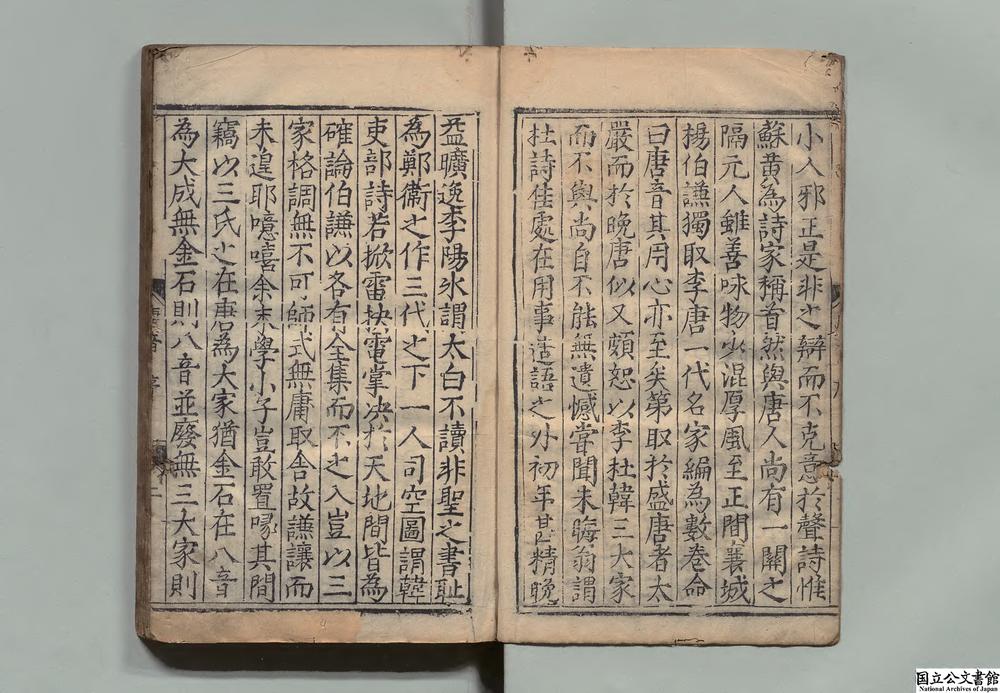 小人邪正是非之辯而不克意於聲詩惟
蘇黃為詩家稱首然與唐人尚有一關之
隔元人雖善咏物少混厚風至正間襄城
楊伯謙獨取李唐一代名家編為數卷命
曰唐音其用心亦至矣第取於盛唐者太
嚴而於晚唐似又頗恕以李杜韓三大家
而不與尚自不能無遺憾甞聞朱晦翁謂
杜詩佳處在用事造語之外初年甚精晚
益曠逸李陽氷謂太白不讀非聖之書耻
為鄭衞之作三代之下一人司空圖謂韓
吏部詩若掀雷抉電掌决於天地間皆為
確論伯謙以各有全集而不之入豈以三
家格調無不可師式無庸取舍故謙讓而
未遑耶噫嘻余末學小子豈敢置喙其間
竊以三氏之在唐為大家猶金石在八音
為大成無金石則八音並廢無三大家則
唐音 序
二
国立公文書館
National Archives of Japan